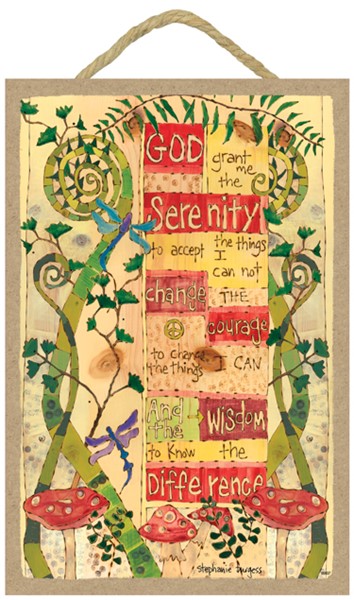 GOD grant
me
the
Serenity
to accept the things
I
can not
change THE
courage
to change
the things I CAN
And
the Wisdom
to Know the
Difference
stephanie burgess